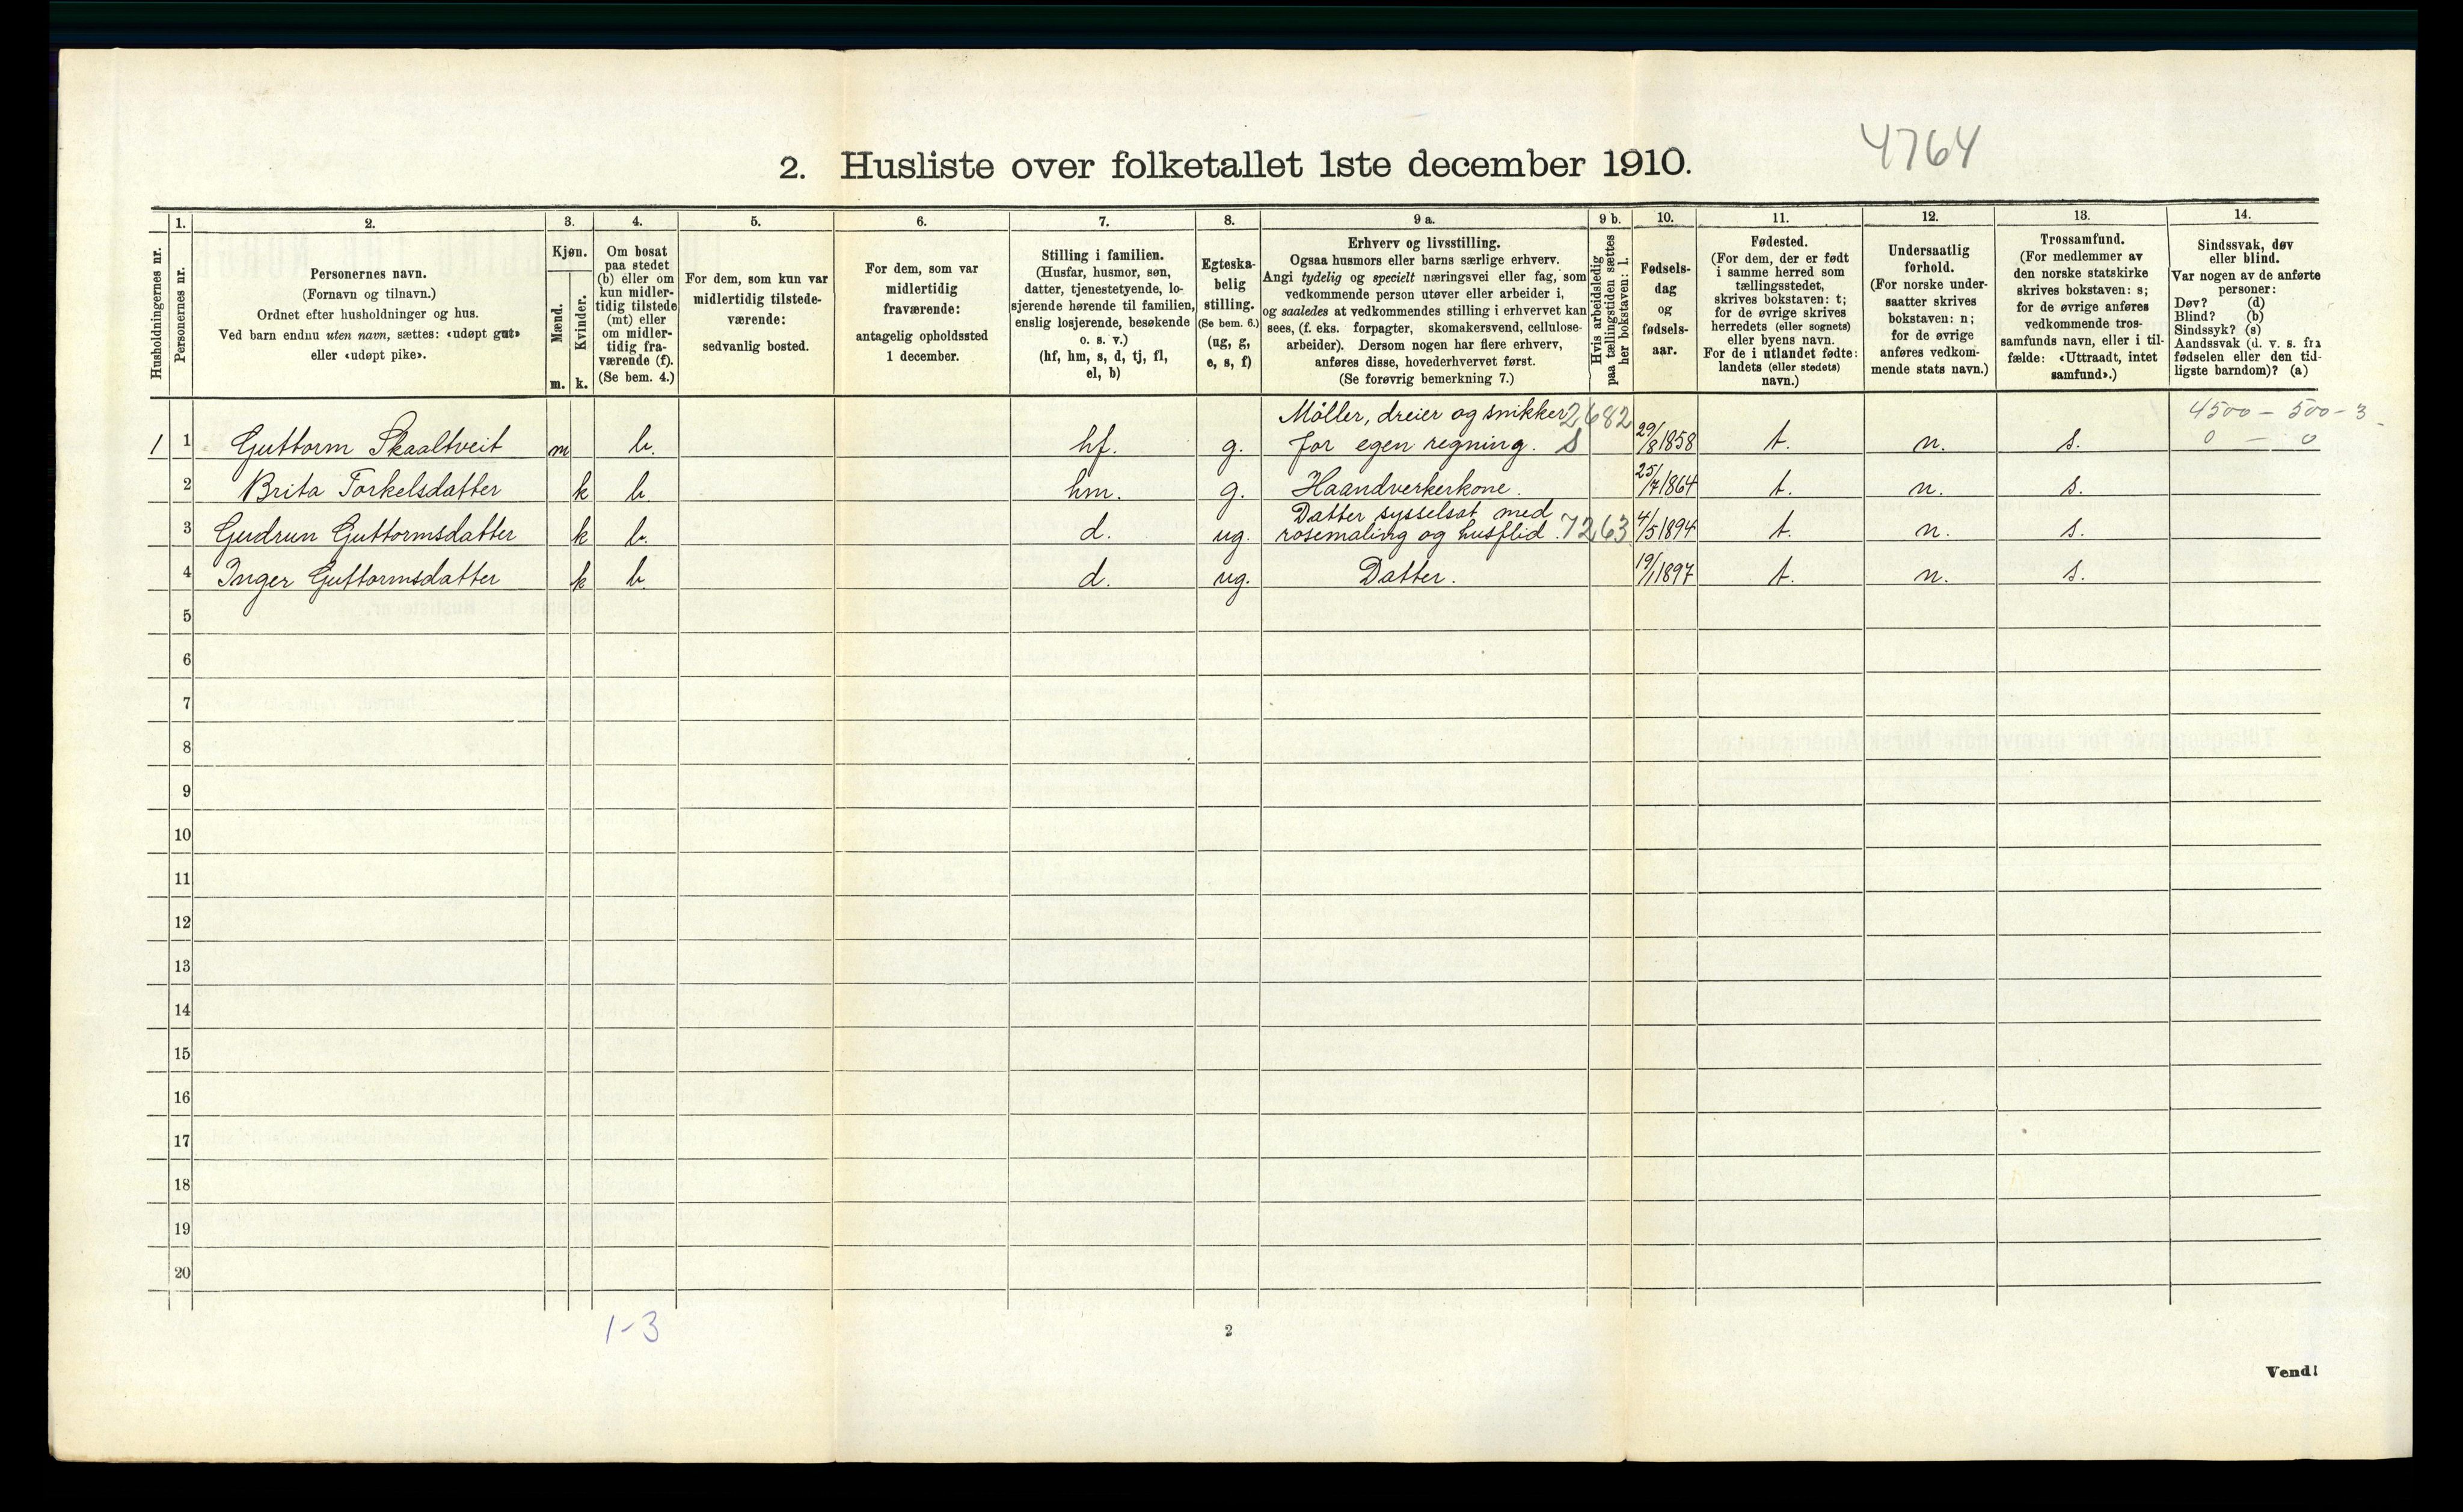 4764
2. Husliste over folketallet 1ste december 1910.
Husholdningernes nr.
1.
Personernes nr.
2.
Personernes navn.
(Fornavn og tilnavn.)
Ordnet efter husholdninger og hus.
Ved barn endnu uten navn, sættes: «udøpt gut»
eller «udøpt pike».
3.
Kjøn.
Mænd.
Kvinder.
m. k.
4.
Om bosat
paa stedet
(b) eller om
kun midler-
tidig tilstede
(mt) eller
om midler-
tidig fra-
værende (f).
(Se bem. 4.)
5.
For dem, som kun var
midlertidig tilstede-
værende:
sedvanlig bosted.
6.
For dem, som var
midlertidig
fraværende:
antagelig opholdssted
1 december.
7.
Stilling i familien.
(Husfar, husmor, søn,
datter, tjenestetyende, lo-
sjerende hørende til familien,
enslig losjerende, besøkende
o. s. v.)
(hf, hm, s, d, tj, fl,
el, b)
8.
Egteska-
belig
stilling.
(Se bem. 6.)
(ug, g,
e, s, f)
9 a.
Erhverv og livsstilling.
Ogsaa husmors eller barns særlige erhverv.
Angi tydelig og specielt næringsvei eller fag, som
vedkommende person utøver eller arbeider i,
og saaledes at vedkommendes stilling i erhvervet kan
sees, (f. eks. forpagter, skomakersvend, cellulose-
arbeider). Dersom nogen har flere erhverv,
anføres disse, hovederhvervet først.
(Se forøvrig bemerkning 7.)
9 b.
Hvis arbeidsledig
paa tællingstiden sættes
her bokstaven: l.
10.
Fødsels-
dag
og
fødsels-
aar.
11.
Fødested.
(For dem, der er født
i samme herred som
tællingsstedet,
skrives bokstaven: t;
for de øvrige skrives
herredets (eller sognets)
eller byens navn.
For de i utlandet fødte:
landets (eller stedets)
navn.)
12.
Undersaatlig
forhold.
(For norske under-
saatter skrives
bokstaven: n;
for de øvrige
anføres vedkom-
mende stats navn.)
13.
Trossamfund.
(For medlemmer av
den norske statskirke
skrives bokstaven: s;
for de øvrige anføres
vedkommende tros-
samfunds navn, eller i til-
fælde: «Uttraadt, intet
samfund».)
14.
Sindssvak, døv
eller blind.
Var nogen av de anførte
personer:
Døv? (d)
Blind? (b)
Sindssyk? (s)
Aandssvak (d. v. s. fra
fødselen eller den tid-
ligste barndom)? (a)
Møller, dreier og snikker 2682 4500 – 500 – 3
1 1 Guttorm Skaaltveit m b. hf. g. for egen regning. S 29/8 1858 t. n. s. 0 – 0
2 Brita Torkelsdatter k b hm. g. Haandverkerkone. 25/7 1864 t. n. s.
Datter sysselsat med
3 Gudrun Guttormsdatter k b. d. ug. rosemaling og husflid. 7263 4/5 1894 t. n. s.
4 Inger Guttormsdatter k b d. ug. Datter. 19/1 1897 t. n. s.
5
6
7
8
9
10
11
12
13
14
15
16
17
18
19
20
1-3
2
Vend!